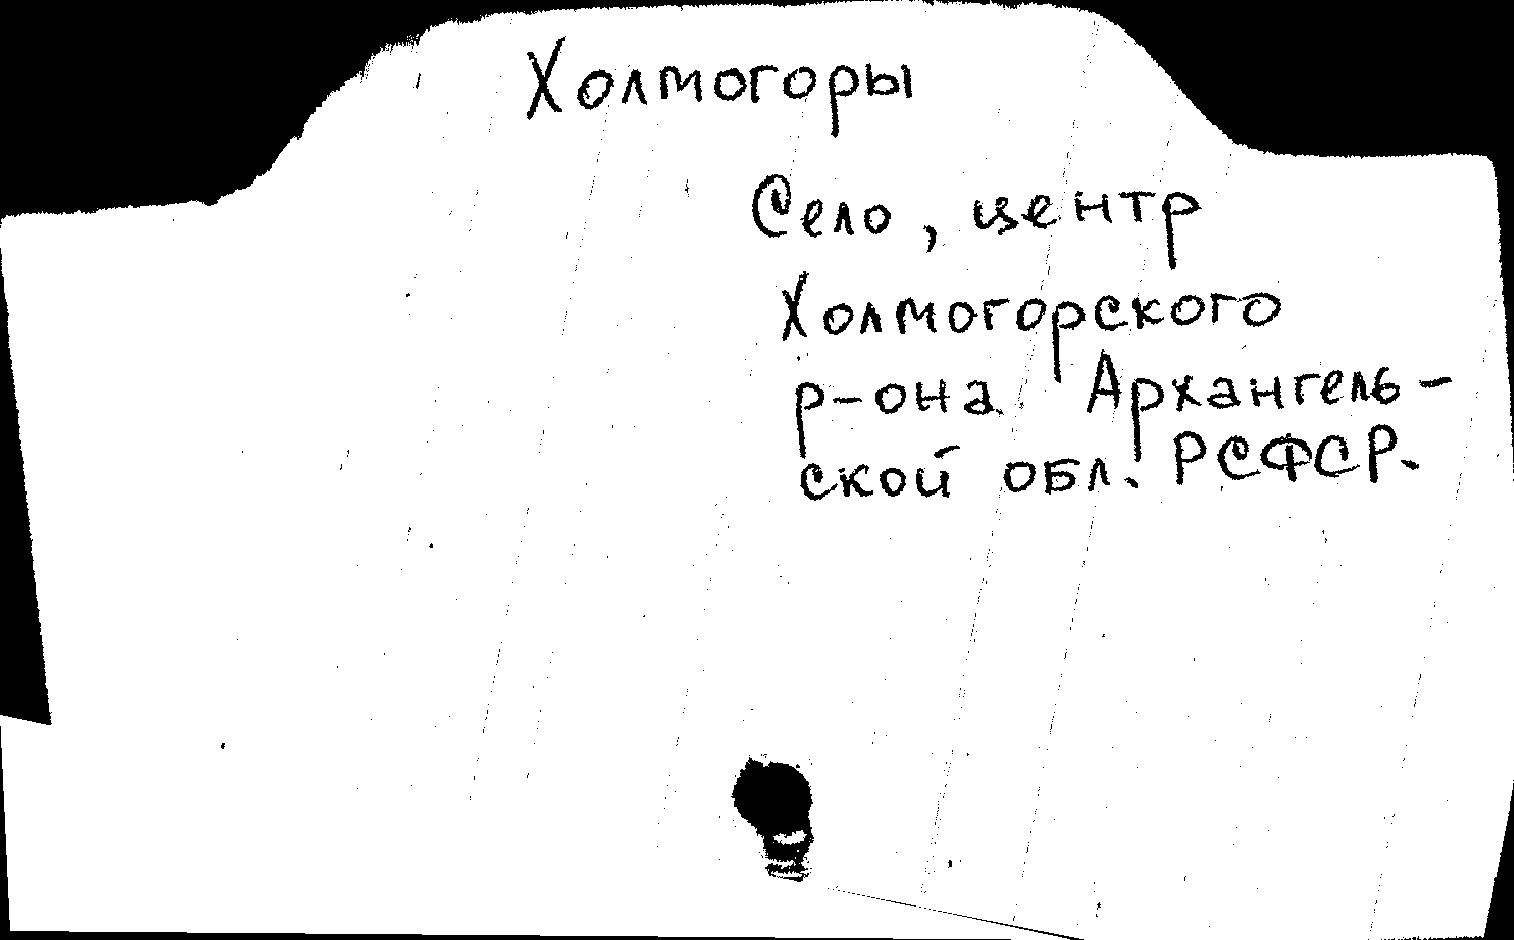 Холмогоры
Село, центр
Холмогорского
р-она Архангель-
ской обл. РСФСР.